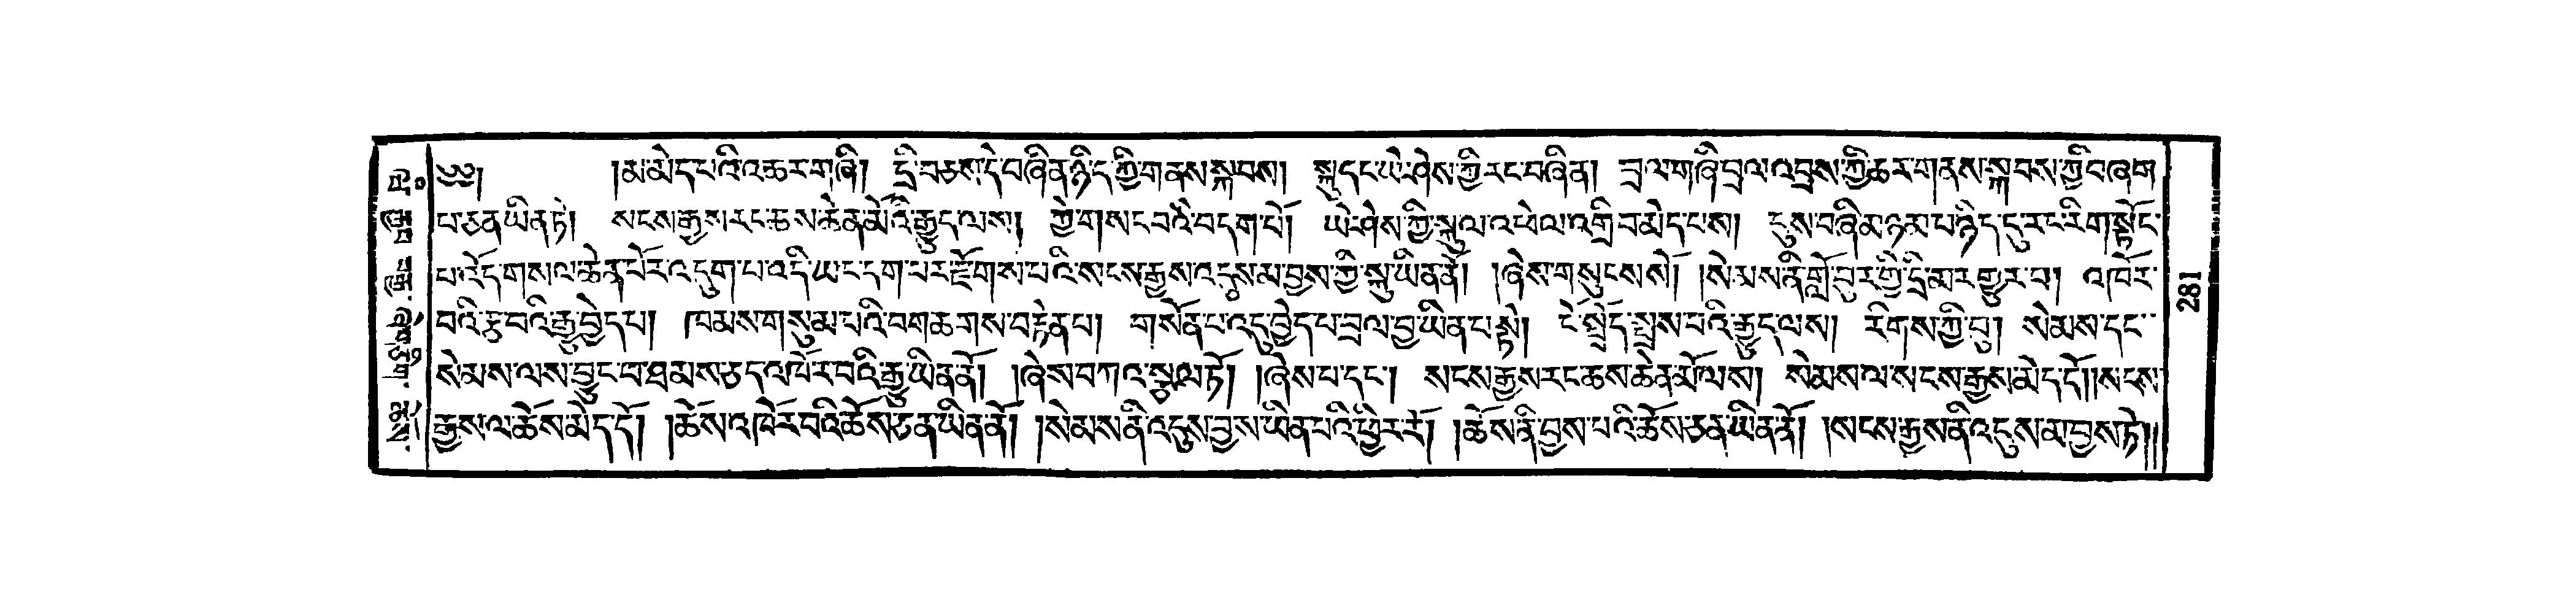 ༄༅། །མ་མེད་པའི་འཆར་གཞི། དྲི་བཅས་དེ་བཞིན་ཉིད་ཀྱི་གནས་སྐབས། སྐུ་དང་ཡེ་ཤེས་ཀྱི་རང་བཞིན། བྲལ་གཞི་བྲལ་འབྲས་ཀྱི་ཆར་གནས་སྐབས་ཀྱི་བཞག
པ་ཅན་ཡིན་ཏེ། སངས་རྒྱས་རང་ཆས་ཆེན་མོའི་རྒྱུད་ལས། ཀྱེ་གསང་བའི་བདག་པོ། ཡེ་ཤེས་ཀྱི་སྐུ་ལ་འཕེལ་འགྲིབ་མེད་ངས། དུས་བཞི་མཉམ་པ་ཉིད་དུ་རང་རིག་སྟོང་
པ་འོད་གསལ་ཆེན་པོར་འདུག་པ་འདི་ཡང་དག་པར་རྫོགས་པའི་སངས་རྒྱས་འདུས་མ་བྱས་ཀྱི་སྐུ་ཡིན་ནོ། །ཞེས་གསུངས་སོ། །སེམས་ནི་གློ་བུར་གྱི་དྲི་མར་གྱུར་པ། འཁོར་
བའི་རྩ་བའི་རྒྱུ་བྱེད་པ། ཁམས་གསུམ་པའི་བག་ཆགས་བརྟེན་པ། གསོན་པ་འདུ་བྱེད་པ་བྲལ་བྱ་ཡིན་པ་སྟེ། ངེས་སྤྲོད་སྤྲས་པའི་རྒྱུད་ལས། རིགས་ཀྱི་བུ། སེམས་དང་
སེམས་ལས་བྱུང་བ་ཐམས་ཅད་འཁོར་བའི་རྒྱུ་ཡིན་ནོ། །ཞེས་བཀའ་སྩལ་ཏོ། །ཞེས་པ་དང་། སངས་རྒྱས་རང་ཆས་ཆེན་མོ་ལས། སེམས་ལ་སངས་རྒྱས་མེད་དོ། །སངས་
རྒྱས་ལ་ཆོས་མེད་དོ། །ཆོས་འཁོར་བའི་ཆོས་ཅན་ཡིན་ནོ། །སེམས་ནི་འདུས་བྱས་ཡིན་པའི་ཕྱིར་རོ། །ཆོས་ནི་བྱས་པའི་ཆོས་ཅན་ཡིན་ནོ། །སངས་རྒྱས་ནི་འདུས་མ་བྱས་ཏེ།།